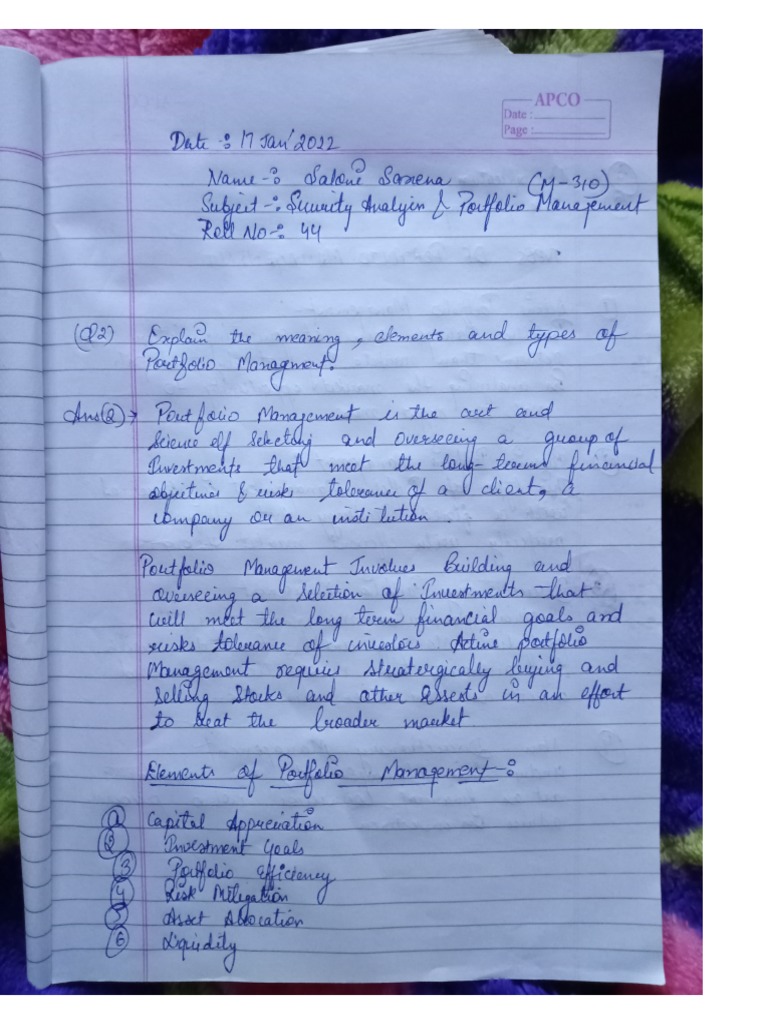 APCO
Date :
Page :
Date -: 17 Jan' 2022
Name -: Saloni Saxena (M-310)
Subject -: Security Analysis & Portfolio Management
Roll No -: 44
(Q2) Explain the meaning, elements and types of
Portfolio Managment.
Ans(2)→ Portfolio Management is the art and
Science of Selecting and overseeing a group of
Investments that meet the long-term financial
objectives & risks tolerance of a client, a
company or an institution.
Portfolio Management Involves Building and
overseeing a selection of Investments that
will meet the long term financial goals and
risks tolerance of investors Active portfolio
Management requires stratergically buying and
Selling Stocks and other Assests in an effort
to beat the broader market
Elements of Portfolio Management -:
1 Capital Appreciation
2 Investment Goals
3 Portfolio Efficiency
4 Risk Mitigation
5 Asset Allocation
6 Liquidity